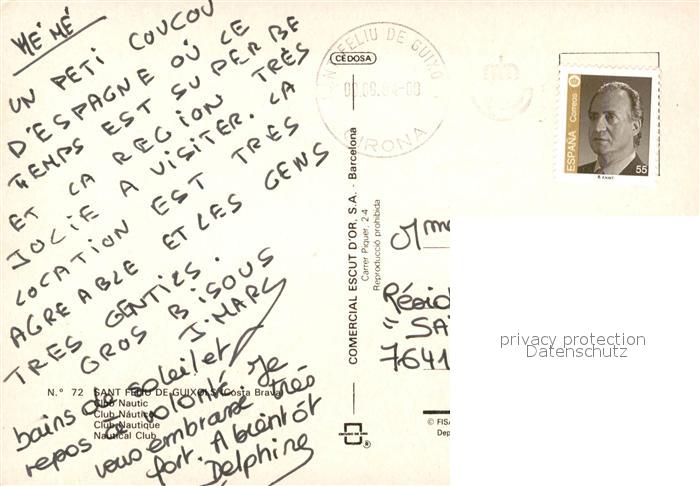 MÉMÉ
UN PETI COUCOU
D'ESPAGNE OÙ LE
TEMPS EST SUPERBE
ET LA REGION TRÈS
JOLIE A VISITER. LA
LOCATION EST TRES
AGREABLE ET LES GENS
TRES GENTILS.
GROS BISOUS
J. MARC
bains de soleil et
repos de volonté. Je
vous embrasse très
fort. A bientôt
Delphine
N.° 72 SANT FELIU DE GUIXOLS (Costa Brava)
Club Nautic
Club Náutico
Club Nautique
Nautical Club
CEDOSA
COMERCIAL ESCUT D'OR, S.A. - Barcelona
Carrer Piquer, 2-4
Reproducció prohibida
FELIU DE GUIXO
GIRONA
ESPAÑA Correos
55
Mme
Résid
"SAI
7641
privacy protection
Datenschutz
© FISA
Dep